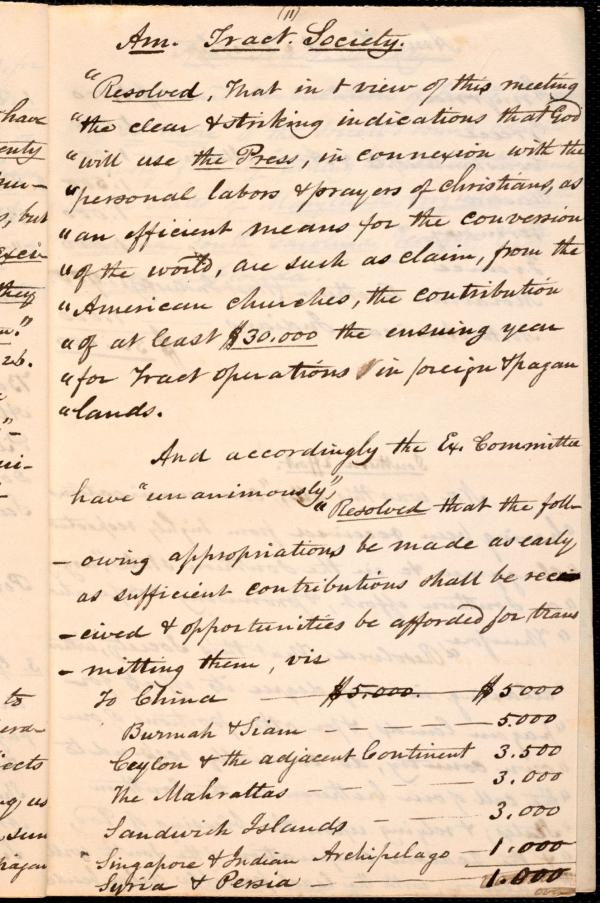 (11)
Am. Tract. Society.
"Resolved, That in t view of this meeting
"the clear & striking indications that God
"will use the Press, in connexion with the
"personal labors & prayers of christians, as
"an efficient means for the conversion
"of the world, are such as claim, from the
"American churches, the contribution
"of at least $30.000 the ensuing year
"for Tract operations in foreign & pagan
"lands.
And accordingly the Ex. Committee
have "unanimously",
"Resolved that the foll-
-owing appropriations be made as early
as sufficient contributions shall be recei
-eived & opportunities be afforded for trans
-mitting them, vis
To China — $5.000. — $5000
Burmah & Siam - - - - 5.000
Ceylon & the adjacent Continent 3.500
The Mahrattas - - - - 3.000
Sandwich Islands - - 3.000
" Singapore & Indian Archipelago — 1.000
Syria & Persia - - - 1.000
have
enty
s, but
Excu
they
26.
to
jects
ng, us
sum
hagan